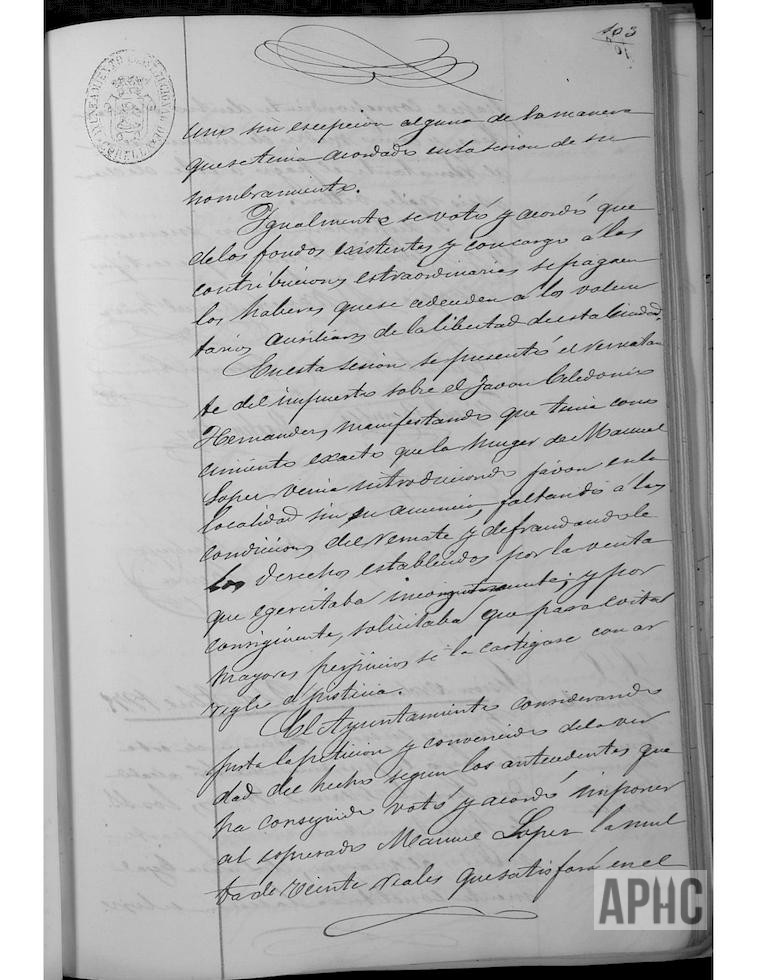 103
AYUNTAMIENTO CONSTITUCIONAL DE CORELLA
uno sin escepcion alguna de la manera
que se tenia acordado en la sesion de su
nombramiento.
Igualmente se votó y acordó que
de los fondos existentes y con cargo á las
contribuciones estraordinarias se paguen
los haberes que se adeuden á los volun
tarios auxiliares de la libertad de esta Ciudad.
En esta sesion se presentó el rematan
te del impuesto sobre el Javon Celedonio
Hernandez, manifestando que tenia cono
cimiento exacto que la Muger de Manuel
Lopez venia introduciendo jávon en la
localidad sin su anuencia, faltando á las
condiciones del remate y defraudandole
los derechos establecidos por la venta
que egercitaba y por
consiguiente, solicitaba que para evitar
mayores perjuicios se la castigase con ar
reglo á justicia.
El Ayuntamiento considerando
justa la peticion y convencido de la ver
dad del hecho segun los antecedentes que
ha conseguido votó y acordó imponer
al espresado Manuel Lopez la mul
ta de veinte reales que satisfará en el
APHC